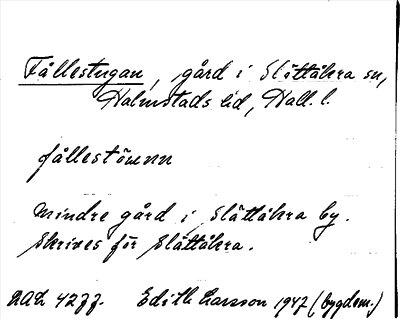 Fållestugan, gård i Slättåkra sn,
Halmstads hd, Hall. l.
fållestöwnn
mindre gård i Slättåkra by.
Skrives för Slättåkra.
Edith Larsson 1947 (bygdem.)